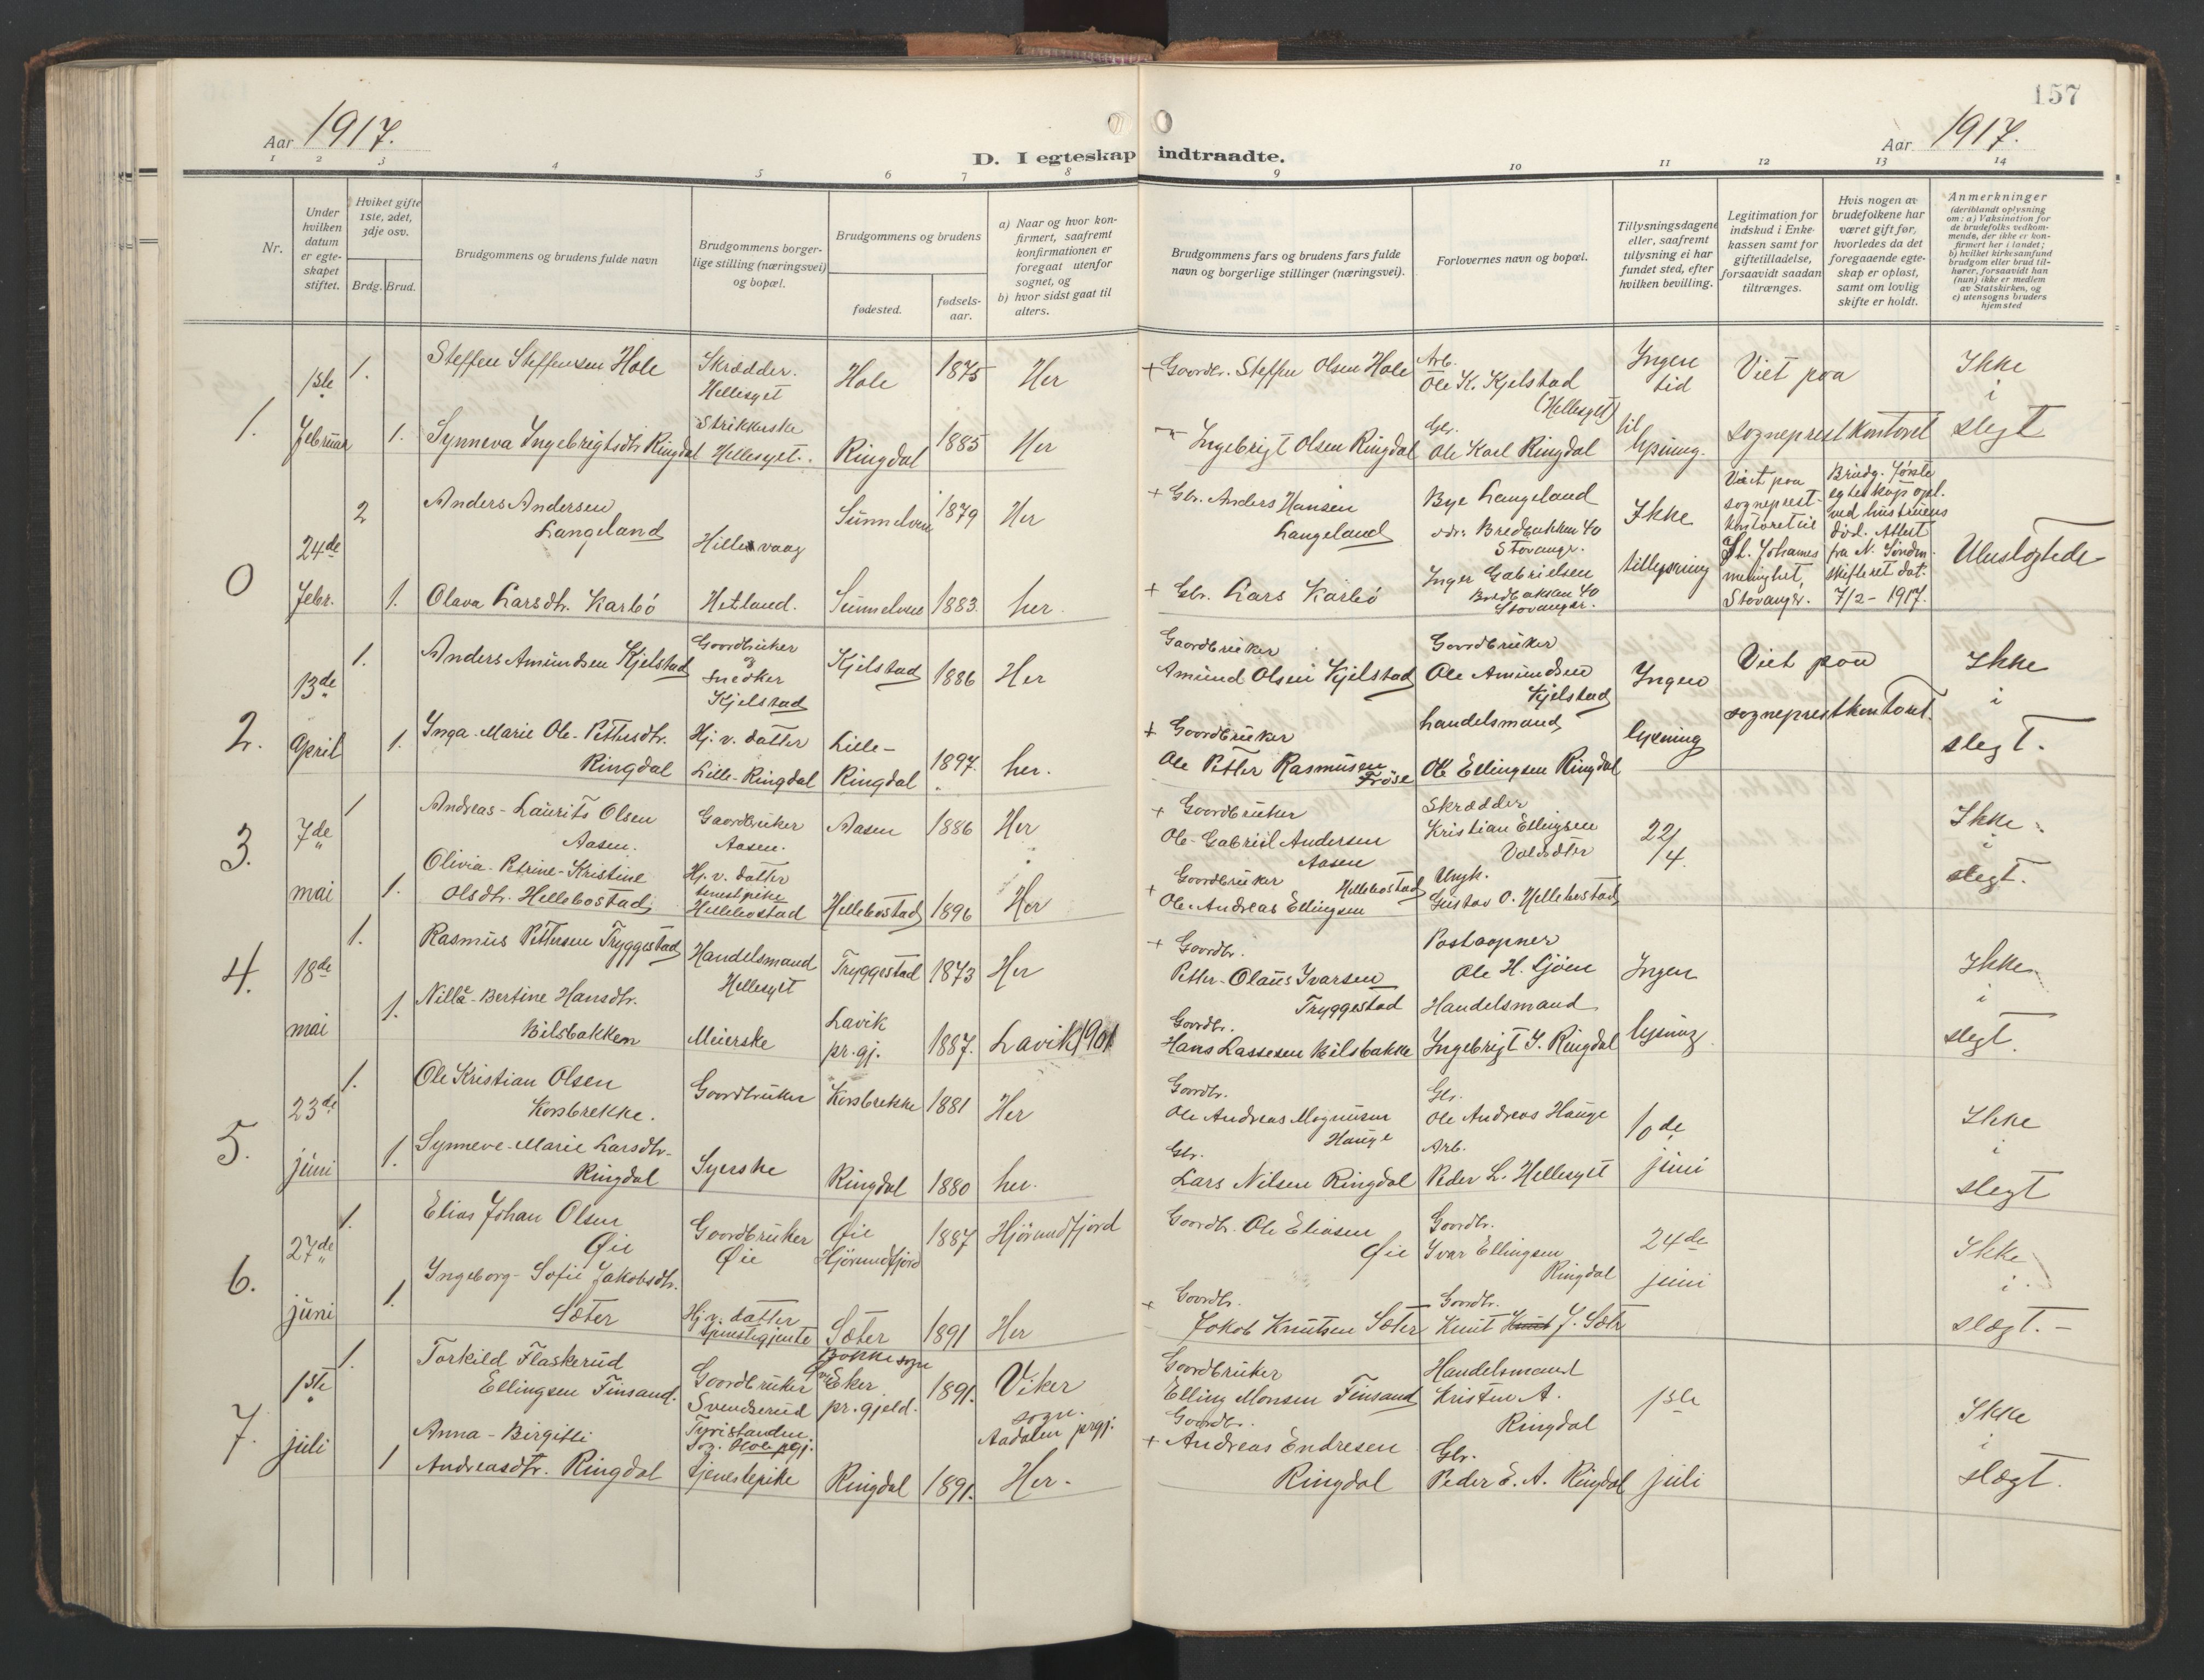 157
Aar 1917.
Aar 1917.
D. I egteskap indtraadte.
1 2 3 4 5 6 7 8 9 10 11 12 13 14
Nr.
Under hvilken datum er egteskapet stiftet.
Hvilket gifte 1ste, 2det, 3dje osv.
Brdg. Brud.
Brudgommens og brudens fulde navn
Brudgommens borgerlige stilling (næringsvei) og bopæl.
Brudgommens og brudens
fødested.
fødselsaar.
a) Naar og hvor konfirmert, saafremt konfirmationen er foregaat utenfor sognet, og
b) hvor sidst gaat til alters.
Brudgommens fars og brudens fars fulde navn og borgerlige stillinger (næringsvei).
Forlovernes navn og bopæl.
Tillysningsdagene eller, saafremt tillysning ei har fundet sted, efter hvilken bevilling.
Legitimation for indskud i Enkekassen samt for giftetilladelse, forsaavidt saadan tiltrænges.
Hvis nogen av brudefolkene har været gift før, hvorledes da det foregaaende egteskap er opløst, samt om lovlig skifte er holdt.
Anmerkninger (deriblandt oplysning om: a) Vaksination for de brudefolks vedkommende, der ikke er konfirmert her i landet; b) hvilket kirkesamfund brudgom eller brud tilhører, forsaavidt han (hun) ikke er medlem av Statskirken, og c) utensogns bruders hjemsted
1.
1ste Februar
1. Steffen Steffensen Hole
Skrædder. Hellesyet
Hole 1875 Her
+ Gaardbr. Steffen Olsen Hole
Arb. Ole K. Kjelstad (Hellesyet)
Ingen tid til lysning.
Viet paa sogneprestkontoret
Ikke i slegt
1. Synneva Ingebrigtsdtr. Ringdal
Strikkerske Hellesyet.
Ringdal 1885 Her
Ingebrigt Olsen Ringdal
Gbr. Ole Karl Ringdal
0
24de Febr.
2 Anders Andersen Langeland
Hillevaag
Sunnelven 1879 Her
+ Gbr. Anders Hansen Langeland
Bye Langeland adr. Bredbakken 40 Stavanger.
Ikke tillysning
Viet paa sogneprestkontoret til St. Johannes menighet, Stavanger.
Brudg. første egteskap opl. ved hustruens død. Attest fra N. Søndm. skifteret dat. 7/2 - 1917.
Ubeslegtede
1. Olava Larsdtr. Karbö
Hetland.
Sunnelven 1883. her.
+ Gbr. Lars Karbö
Inger Gabrielsen Bredbakken 40 Stavanger.
2.
13de April
1. Anders Amundsen Kjelstad
Gaardbruker og Snedker Kjelstad
Kjelstad 1886 Her
Gaardbruker Amund Olsen Kjelstad
Gaardbruker Ole Amundsen Kjelstad
Ingen lysning
Viet paa sogneprestkontoret.
Ikke i slegt.
1. Inga-Marie Ole-Pettersdtr. Ringdal
Hj. v. datter Lille-Ringdal
Lille-Ringdal 1897. her.
+ Gaardbruker Ole Petter Rasmussen Fröse
Handelsmand Ole Ellingsen Ringdal
3.
7de mai
1 Andreas-Laurits Olsen Aasen.
Gaardbruker Aasen.
Aasen 1886 Her
+ Gaardbruker Ole-Gabriel Andersen Aasen
Skrædder Kristian Ellingsen
22/4.
Ikke i slegt.
1. Olivia-Petrine-Kristine Olsdtr. Hellebostad
Hj. v. datter tenestpike Hellebostad
Hellebostad 1896 Her
+ Gaardbruker Ole-Andreas Ellingsen Hellebostad
Ungk. Gustav O. Hellebostad
4.
18de mai
1. Rasmus Pettersen Tryggestad
Handelsmand Hellesyet
Tryggestad 1873 Her
+ Gaardbr. Petter-Olaus Ivarsen Tryggestad
Postaapner Ole H. Sjöen
Ingen lysning
Ikke i slegt.
1. Nilla-Bertine Hansdtr. Bilsbakken
Meierske
Lavik pr.gj. 1887. Lavik 1901
Gaardbr. Hans Lassesen Bilsbakke
Handelsmand Ingebrigt S. Ringdal
5.
23de juni
1. Ole Kristian Olsen Korsbrekke.
Gaardbruker
Korsbrekke 1881 Her
Gaardbr. Ole Andreas Magnusen Hauge
Gbr. Ole Andreas Hauge
10de juni
Ikke i slegt
1. Synneve-Marie Larsdtr. Ringdal
Syerske
Ringdal 1880 her.
Gbr. Lars Nilsen Ringdal
Arb. Peder L. Hellesyet
6.
27de juni
1. Elias Johan Olsen Øie
Gaardbruker Øie
Øie Hjörundfjord 1887 Hjörundfjord
Gaardbr. Ole Eliasen Øie
Gaardbr. Ivar Ellingsen Ringdal
24de juni
Ikke i slegt.-
1. Ingeborg-Sofie Jakobsdtr. Sæter
Hj. v. datter Tjenestegjente
Sæter 1891 Her
+ Gaardbr. Jakob Knutsen Sæter
Gaardbr. Knut Knut J. Sætr
7.
1ste juli
1. Torkild Flaskerud Ellingsen Finsand.
Gaardbruker Svendserud Tyristanden sog. Hole pgj.
Bakke sogn Eker pr. gjeld. 1891.
Viker sogn. Aadalen prgj.
Gaardbruker Elling Monsen Finsand
Handelsmand Kristen A. Ringdal
1ste juli
Ikke i slægt.
1 Anna-Birgitte Andreasdtr. Ringdal
tjenestepike
Ringdal 1891. Her.
+ Gaardbr. Andreas Endresen Ringdal
Gbr. Peder E. A. Ringdal